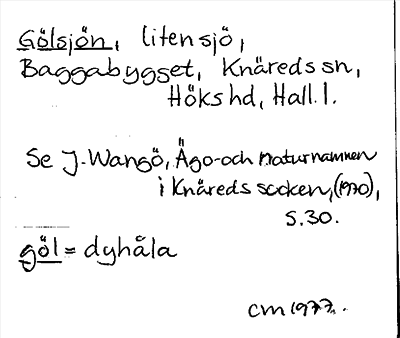 Gölsjön, liten sjö,
Baggabygget, Knäreds sn,
Höks hd, Hall. l.
Se J. Wangö, Ägo- och naturnamnen
i Knäreds socken, (1970),
s. 30.
göl = dyhåla
CM 1977.